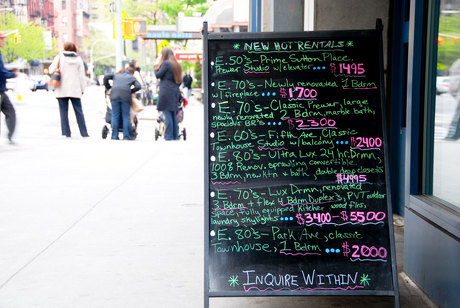 * NEW HOT RENTALS *
• E. 50's - Prime Sutton Place
Prewar Studio w/elevator ••• $1495
• E. 70's - Newly renovated 1 Bdrm
w/fireplace ••• $1700
• E. 70's - Classic Prewar, large
newly renovated 2 Bdrm, marble bath,
spacious BR's ••• $2300
• E. 60's - Fifth Ave, Classic
Townhouse Studio w/balcony ••• $2400
• E. 80's - Ultra Lux 24 hr. Drmn,
100% Renov. sprawling convertible
3 Bdrm, new ktn & bath, double deep closets
$4995
• E. 70's - Lux Drmn, renovated
3 Bdrm & flex 4 Bdrm Duplex's, PVT outdoor
space, fully equipped kitchen wood flrs,
laundry, skylights ••• $3400 - $5500
• E. 80's - Park Ave, classic
Townhouse, 1 Bdrm ••• $2000
* INQUIRE WITHIN *